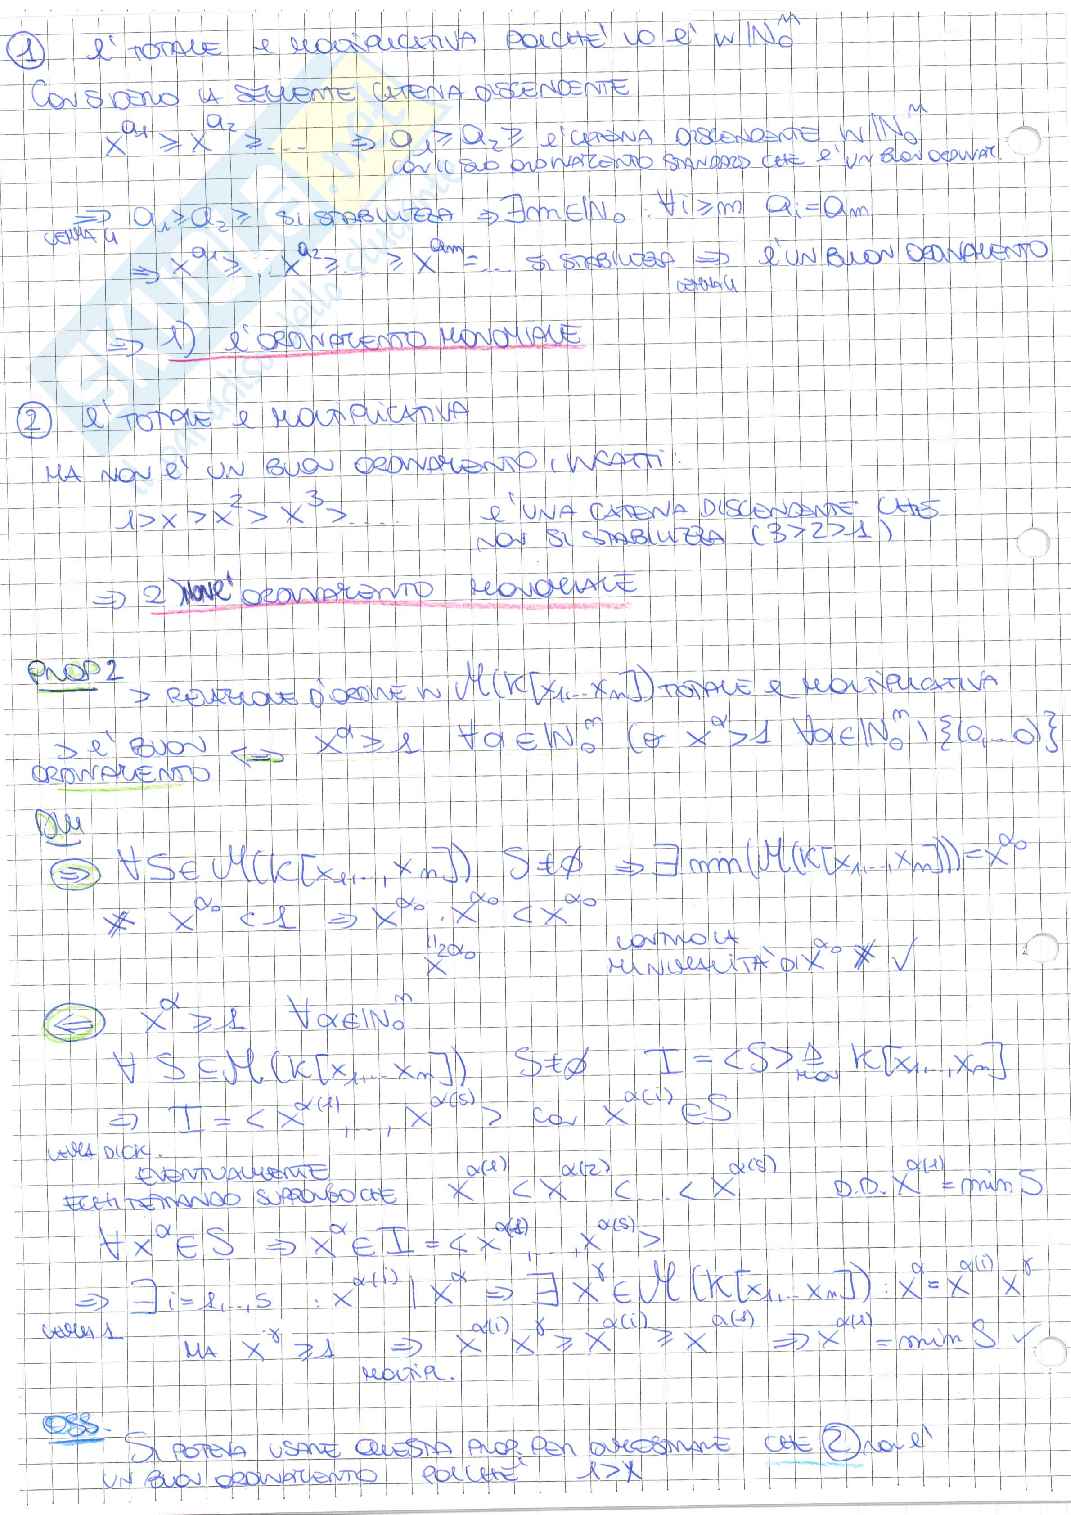 1 È TOTALE E MOLTIPLICATIVA POICHÉ LO È IN ℕ₀ⁿ
CONSIDERO LA SEGUENTE CATENA DISCENDENTE
x^{a₁} ≥ x^{a₂} ≥ .... ⇒ a₁ ≥ a₂ ≥ È CATENA DISCENDENTE IN ℕ₀ⁿ
CON IL SUO ORDINAMENTO STANDARD CHE È UN BUON ORDINAM.
⇒ a₁ ≥ a₂ ≥ SI STABILIZZA ⇒ ∃ m ∈ ℕ₀ : ∀ i ≥ m aᵢ = aₘ
LEMMA 4
⇒ x^{a₁} ≥ .. x^{a₂} ≥ ... ≥ x^{aₘ} = ... SI STABILIZZA ⇒ È UN BUON ORDINAMENTO
LEMMA 4
⇒ 1) È ORDINAMENTO MONOMIALE
2 È TOTALE E MOLTIPLICATIVA
MA NON È UN BUON ORDINAMENTO, INFATTI:
1 > x > x² > x³ > .... È UNA CATENA DISCENDENTE CHE
NON SI STABILIZZA (3>2>1)
⇒ 2) NON È ORDINAMENTO MONOMIALE
PROP 2
> RELAZIONE D'ORDINE IN M(K[x₁,...xₙ]) TOTALE E MOLTIPLICATIVA
> È BUON ⇔ x^α ≥ 1 ∀α ∈ ℕ₀ⁿ (o x^α > 1 ∀α ∈ ℕ₀ⁿ \ {(0,...0)}
ORDINAMENTO
DIM
⇒ ∀ S ∈ M(K[x₁,..,xₙ]) S ≠ ∅ ⇒ ∃ min(M(K[x₁,...,xₙ])) = x^{α₀}
※ x^{α₀} < 1 ⇒ x^{α₀} · x^{α₀} < x^{α₀}
x^{2α₀} CONTRO LA
MINIMALITÀ DI x^{α₀} ※ ✓
⇐ x^α ≥ 1 ∀α ∈ ℕ₀ⁿ
∀ S ⊆ M(K[x₁,...xₙ]) S ≠ ∅ I = <S> ⊴ K[x₁,..,xₙ]
MON
⇒ I = <x^{α(1)},...,x^{α(s)}> CON x^{α(i)} ∈ S
LEMMA DICK.
EVENTUALMENTE
RIETICHETTANDO SUPPONGO CHE x^{α(1)} < x^{α(2)} < ... < x^{α(s)} D.D. x^{α(1)} = min S
∀ x^α ∈ S ⇒ x^α ∈ I = <x^{α(1)},...,x^{α(s)}>
⇒ ∃ i = 1,..,s : x^{α(i)} | x^α ⇒ ∃ x^γ ∈ M(K[x₁,...xₙ]) : x^α = x^{α(i)} x^γ
LEMMA 1
MA x^γ ≥ 1 ⇒ x^{α(i)} x^γ ≥ x^{α(i)} ≥ x^{α(1)} ⇒ x^{α(1)} = min S ✓
MOLTIPL.
OSS.
SI POTEVA USARE QUESTA PROP. PER DIMOSTRARE CHE 2 NON È
UN BUON ORDINAMENTO POICHÉ 1 > x